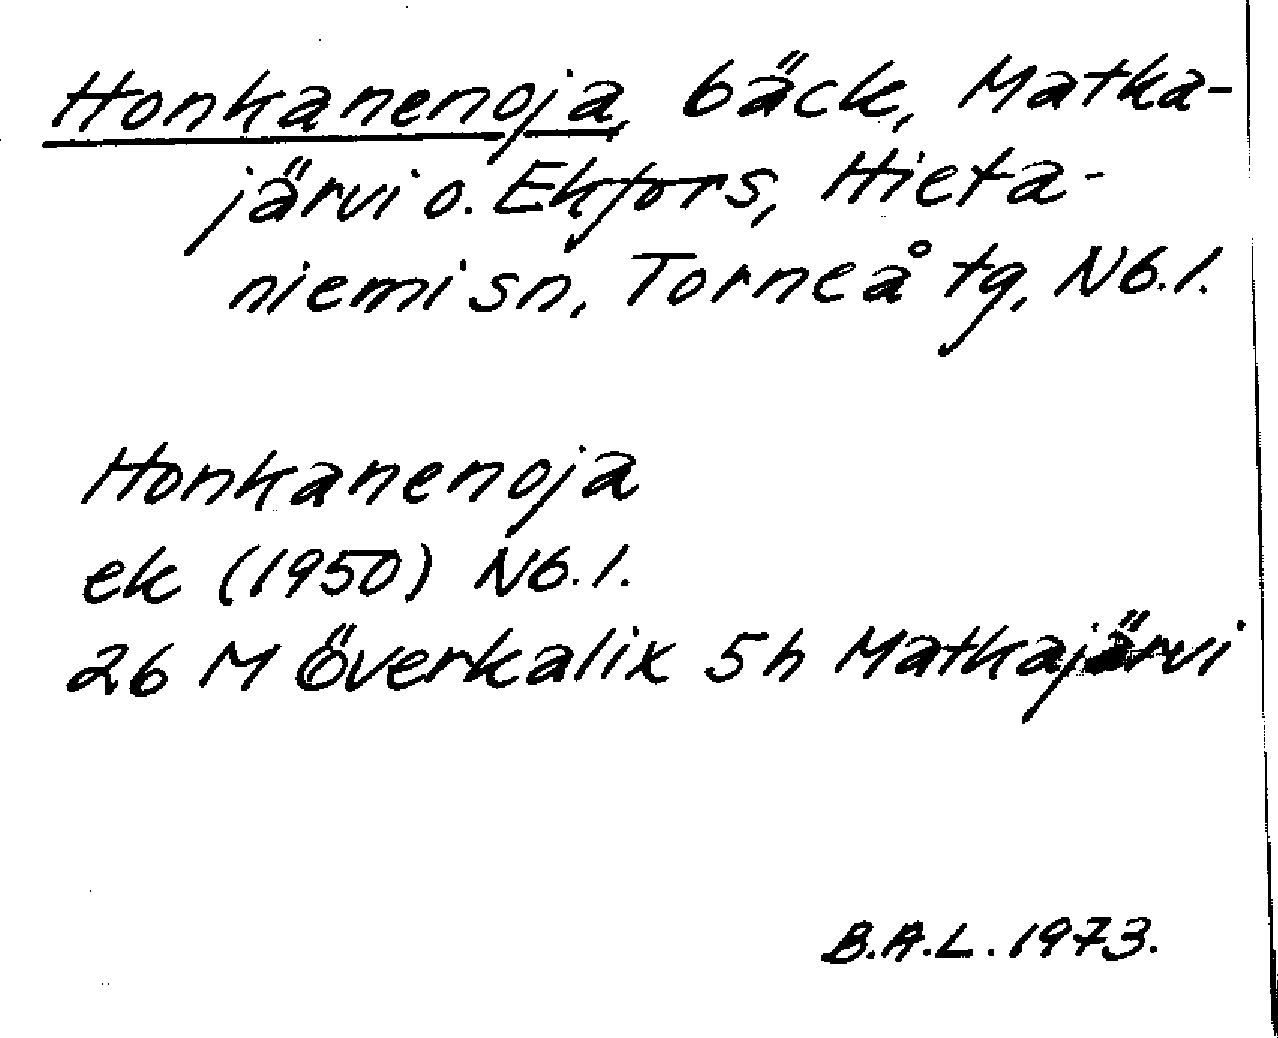 Honkanenoja, bäck, Matka-
järvi o. Ekfors, Hieta-
niemi sn, Torneå tg, Nb.l.
Honkanenoja
ek (1950) Nb.l.
26 M Överkalix 5h Matkajärvi
B.A.L. 1973.